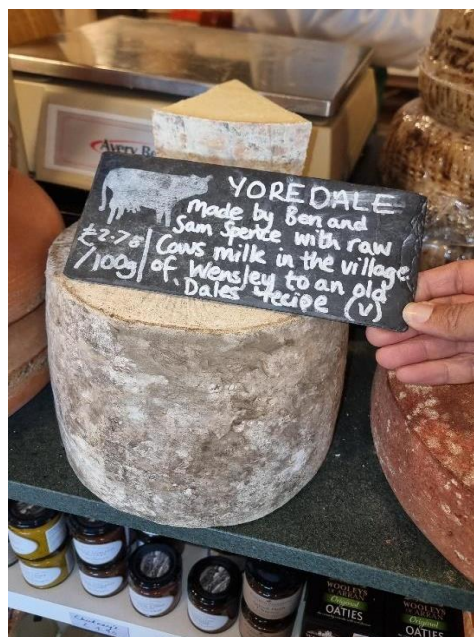 Avery
YOREDALE
made by Ben and
Sam Spence with raw
Cows milk in the village
of Wensley to an old
Dales recipe (v)
£2.76
/100g
WOOLEY'S
OF ARRAN
Original
OATIES
WOOLEY'S
OF ARRAN
Original
OATIES